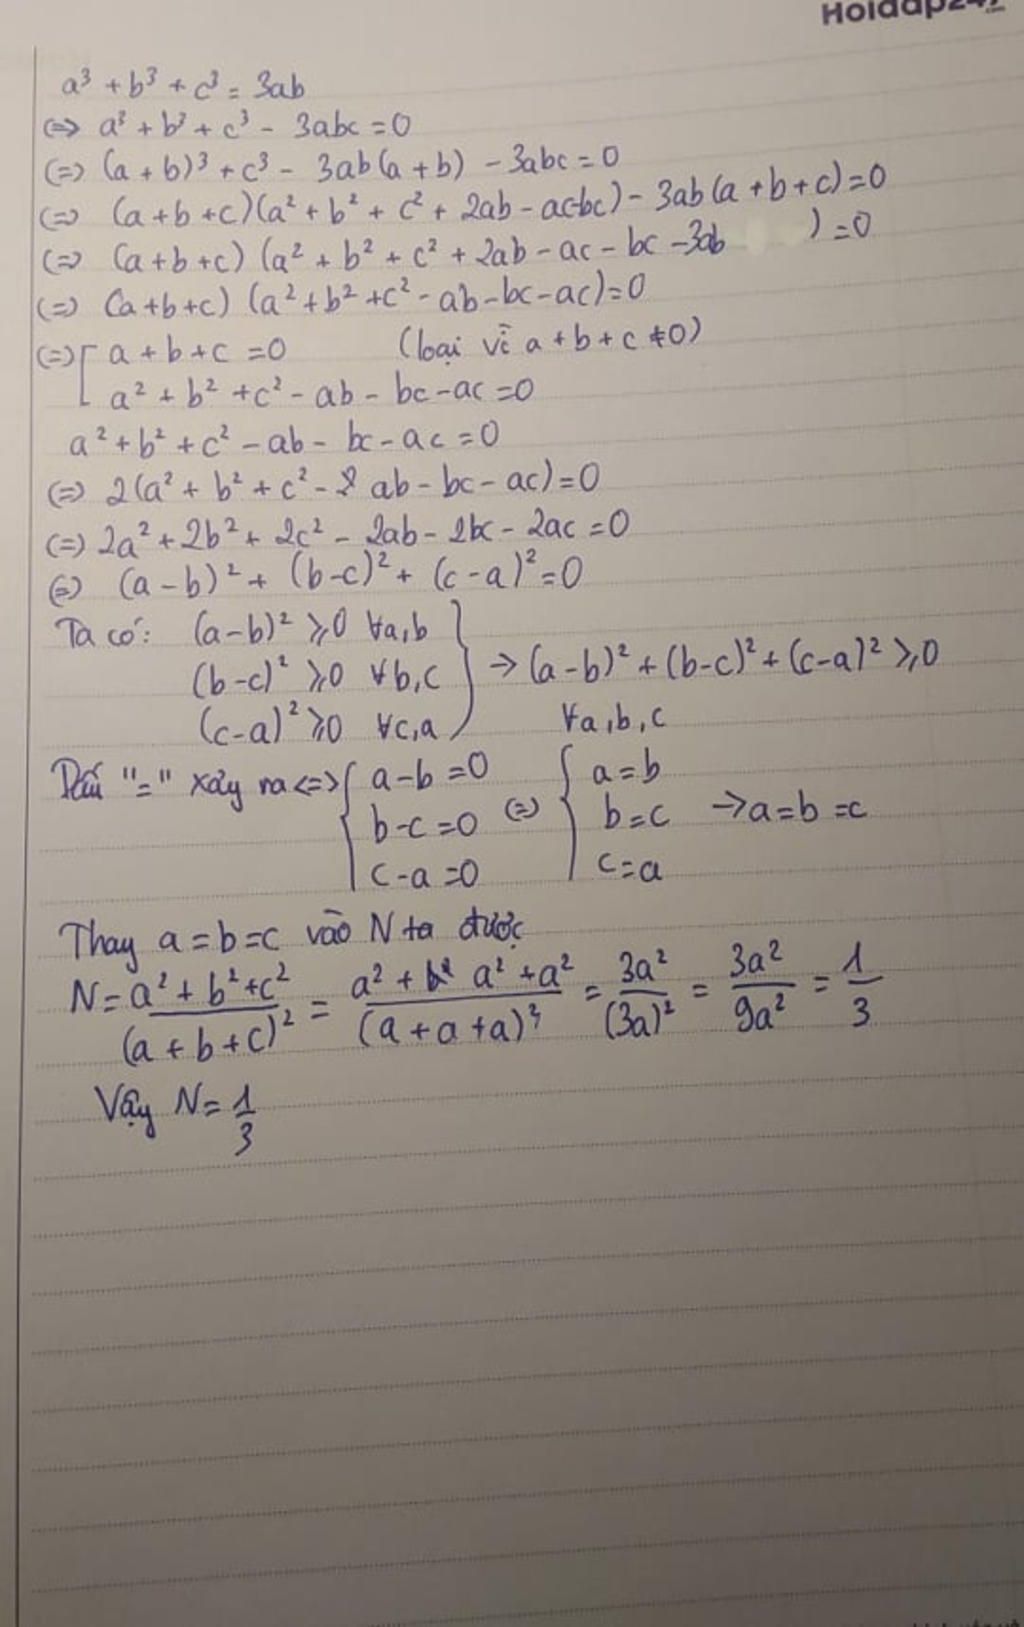 Hoidap247
a³ + b³ + c³ = 3ab
<=> a³ + b³ + c³ - 3abc = 0
(=) (a + b)³ + c³ - 3ab(a + b) - 3abc = 0
(=) (a + b + c)(a² + b² + c² + 2ab - ac-bc) - 3ab(a + b + c) = 0
(=) (a + b + c) (a² + b² + c² + 2ab - ac - bc - 3ab ) = 0
(=) (a + b + c) (a² + b² + c² - ab - bc - ac) = 0
(=) [ a + b + c = 0 (loại vì a + b + c ≠ 0)
a² + b² + c² - ab - bc - ac = 0
a² + b² + c² - ab - bc - ac = 0
(=) 2(a² + b² + c² - ab - bc - ac) = 0
(=) 2a² + 2b² + 2c² - 2ab - 2bc - 2ac = 0
(=) (a - b)² + (b - c)² + (c - a)² = 0
Ta có: (a - b)² ≥ 0 ∀a,b
(b - c)² ≥ 0 ∀b,c } → (a - b)² + (b - c)² + (c - a)² ≥ 0
(c - a)² ≥ 0 ∀c,a ∀a,b,c
Dấu "=" xảy ra <=> { a - b = 0 { a = b
b - c = 0 (=) b = c → a = b = c
c - a = 0 c = a
Thay a = b = c vào N ta được
N = a² + b² + c² / (a + b + c)² = a² + a² + a² / (a + a + a)² = 3a² / (3a)² = 3a² / 9a² = 1/3
Vậy N = 1/3